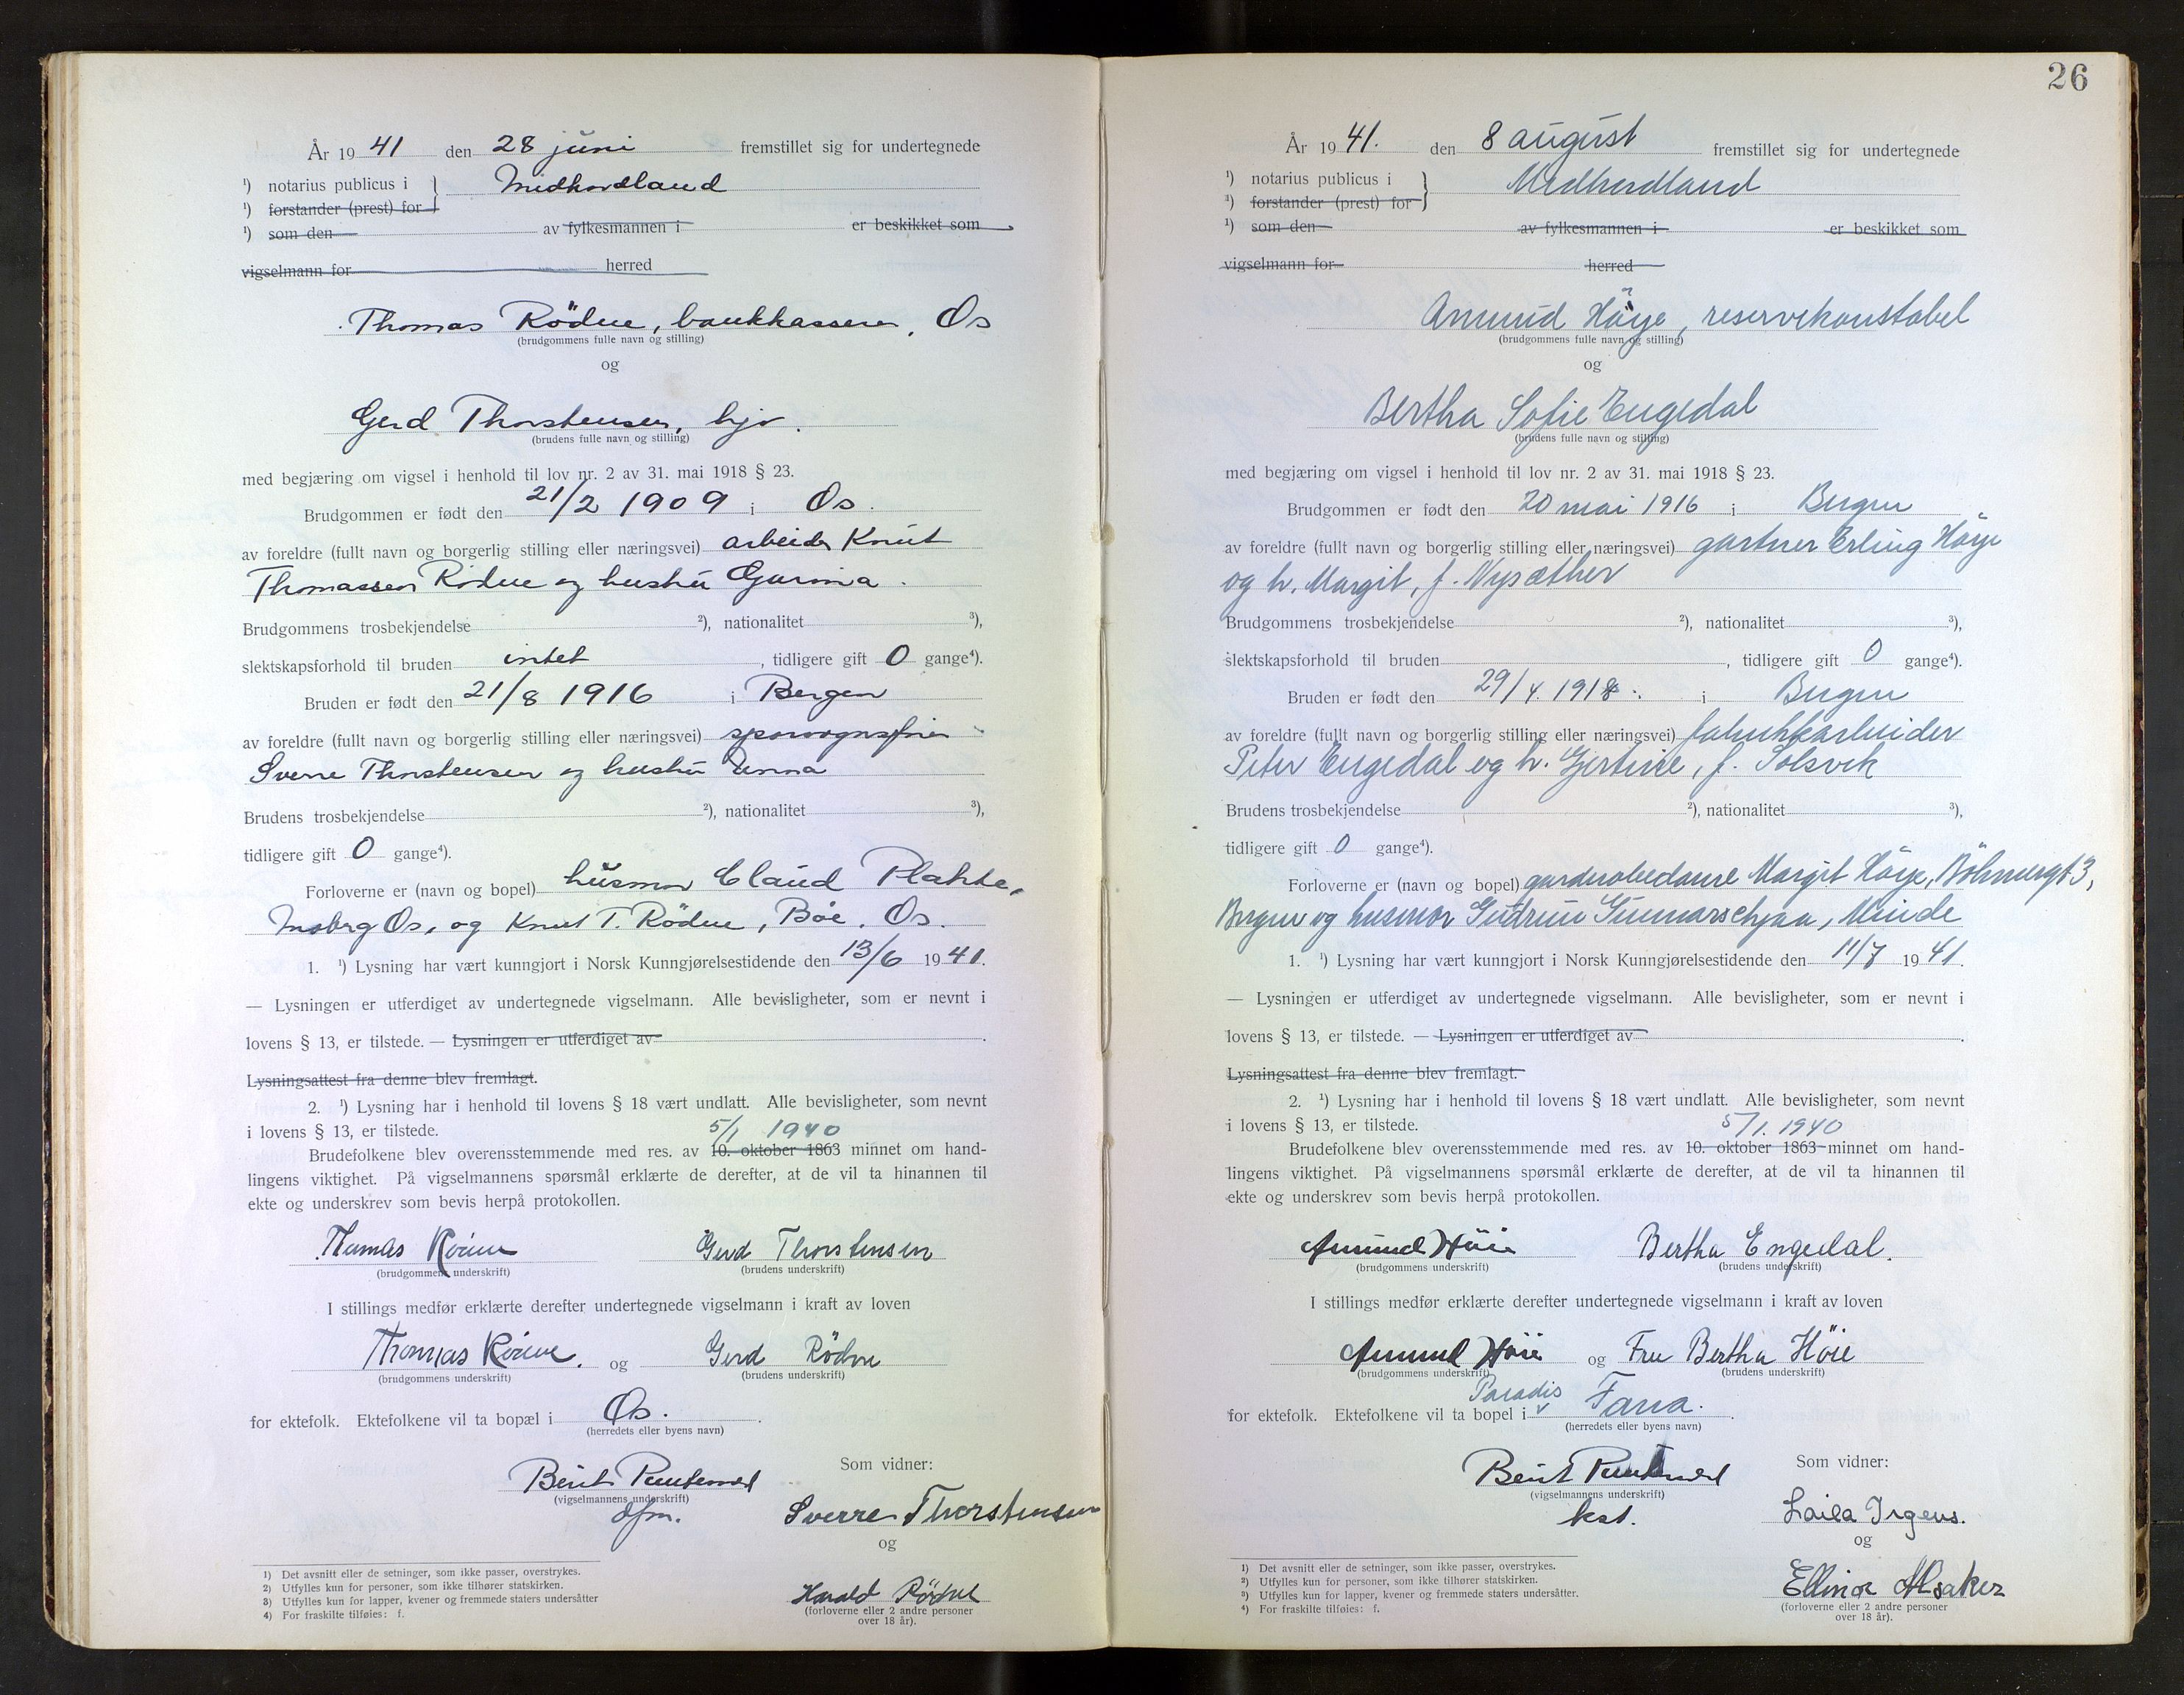 År 19 41 den 28 juni fremstillet sig for undertegnede
¹) notarius publicus i } Midhordland
¹) forstander (prest) for
¹) som den av fylkesmannen i er beskikket som
vigselmann for herred
Thomas Rödne, bankkasserer, Os
(brudgommens fulle navn og stilling)
og
Gerd Thorstensen, hjv.
(brudens fulle navn og stilling)
med begjæring om vigsel i henhold til lov nr. 2 av 31. mai 1918 § 23.
Brudgommen er født den 21/2 1909 i Os.
av foreldre (fullt navn og borgerlig stilling eller næringsvei) arbeider Knut
Thomassen Rödne og hustru Gurina.
Brudgommens trosbekjendelse ²), nationalitet ³),
slektskapsforhold til bruden intet, tidligere gift 0 gange⁴).
Bruden er født den 21/8 1916 i Bergen
av foreldre (fullt navn og borgerlig stilling eller næringsvei) sporvognsfører
Sverre Thorstensen og hustru Anna
Brudens trosbekjendelse ²), nationalitet ³),
tidligere gift 0 gange⁴).
Forloverne er (navn og bopel) husmor Claud Plahte,
Moberg Os, og Knut T. Rödne, Bøe, Os.
1. ¹) Lysning har vært kunngjort i Norsk Kunngjørelsestidende den 13/6 1941.
— Lysningen er utferdiget av undertegnede vigselmann. Alle bevisligheter, som er nevnt i
lovens § 13, er tilstede. — Lysningen er utferdiget av .
Lysningsattest fra denne blev fremlagt.
2. ¹) Lysning har i henhold til lovens § 18 vært undlatt. Alle bevisligheter, som nevnt
i lovens § 13, er tilstede. 5/1 1940
Brudefolkene blev overensstemmende med res. av 10. oktober 1863 minnet om hand-
lingens viktighet. På vigselmannens spørsmål erklærte de derefter, at de vil ta hinannen til
ekte og underskrev som bevis herpå protokollen.
Thomas Rödne Gerd Thorstensen
(brudgommens underskrift) (brudens underskrift)
I stillings medfør erklærte derefter undertegnede vigselmann i kraft av loven
Thomas Rödne. og Gerd Rödne
(brudgommens underskrift) (brudens underskrift)
for ektefolk. Ektefolkene vil ta bopæl i Os.
(herredets eller byens navn)
Som vidner:
Berit
(vigselmannens underskrift)
dfm.
Sverre Thorstensen
og
Harald Rödne
(forloverne eller 2 andre personer
over 18 år).
1) Det avsnitt eller de setninger, som ikke passer, overstrykes.
2) Utfylles kun for personer, som ikke tilhører statskirken.
3) Utfylles kun for lapper, kvener og fremmede staters undersåtter
4) For fraskilte tilføies: f.
26
År 19 41. den 8 august fremstillet sig for undertegnede
¹) notarius publicus i } Midhordland
¹) forstander (prest) for
¹) som den av fylkesmannen i er beskikket som
vigselmann for herred
Amund Höye, reservekonstabel
(brudgommens fulle navn og stilling)
og
Bertha Sofie Engedal
(brudens fulle navn og stilling)
med begjæring om vigsel i henhold til lov nr. 2 av 31. mai 1918 § 23.
Brudgommen er født den 20 mai 1916 i Bergen
av foreldre (fullt navn og borgerlig stilling eller næringsvei) gartner Erling Höye
og h. Margit, f. Nysæther
Brudgommens trosbekjendelse ²), nationalitet ³),
slektskapsforhold til bruden , tidligere gift 0 gange⁴).
Bruden er født den 29/4. 1918. i Bergen
av foreldre (fullt navn og borgerlig stilling eller næringsvei) fabrikkarbeider
Peter Engedal og h. Gjertine, f. Solsvik
Brudens trosbekjendelse ²), nationalitet ³),
tidligere gift 0 gange⁴).
Forloverne er (navn og bopel) garderobedame Margit Höye, Böhmergt 3,
Bergen og husmor Gudrun Gunnarschjaa, Minde
1. ¹) Lysning har vært kunngjort i Norsk Kunngjørelsestidende den 11/7 1941.
— Lysningen er utferdiget av undertegnede vigselmann. Alle bevisligheter, som er nevnt i
lovens § 13, er tilstede. — Lysningen er utferdiget av .
Lysningsattest fra denne blev fremlagt.
2. ¹) Lysning har i henhold til lovens § 18 vært undlatt. Alle bevisligheter, som nevnt
i lovens § 13, er tilstede. 5/1. 1940
Brudefolkene blev overensstemmende med res. av 10. oktober 1863 minnet om hand-
lingens viktighet. På vigselmannens spørsmål erklærte de derefter, at de vil ta hinannen til
ekte og underskrev som bevis herpå protokollen.
Amund Höie Bertha Engedal.
(brudgommens underskrift) (brudens underskrift)
I stillings medfør erklærte derefter undertegnede vigselmann i kraft av loven
Amund Höie og Fru Bertha Höie
(brudgommens underskrift) (brudens underskrift)
for ektefolk. Ektefolkene vil ta bopel i Paradis Fana.
(herredets eller byens navn)
Som vidner:
Berit
(vigselmannens underskrift)
kst.
Laila Irgens.
og
Ellinor Alsaker
(forloverne eller 2 andre personer
over 18 år).
1) Det avsnitt eller de setninger, som ikke passer, overstrykes.
2) Utfylles kun for personer, som ikke tilhører statskirken.
3) Utfylles kun for lapper, kvener og fremmede staters undersåtter.
4) For fraskilte tilføies: f.